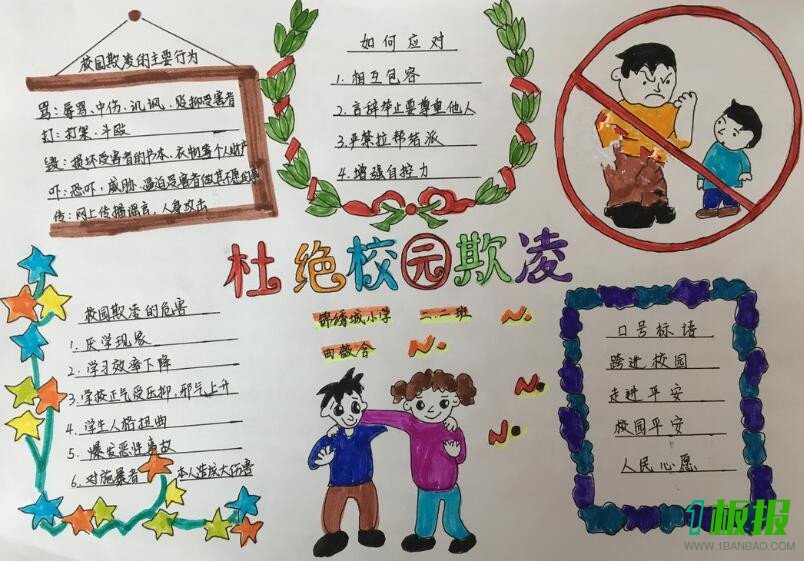 校园欺凌的主要行为
骂：辱骂、中伤、讥讽、贬抑受害者
打：打架、斗殴
毁：损坏受害者的书本、衣物等个人财产
吓：恐吓、威胁、逼迫受害者做其不愿的事
传：网上传播谣言、人身攻击
如何应对
1.相互包容
2.言辞举止要尊重他人
3.严禁拉帮结派
4.增强自控力
杜绝校园欺凌
校园欺凌的危害
1.厌学现象
2.学习效率下降
3.学校正气受压抑，邪气上升
4.学生人格扭曲
5.爆发恶性事故
6.对施暴者 本人造成大伤害
锦绣城小学 二.二班
N.
N.
N.
N.
口号标语
跨进校园
走进平安
校园平安
人民心愿
1板报
WWW.1BANBAO.COM